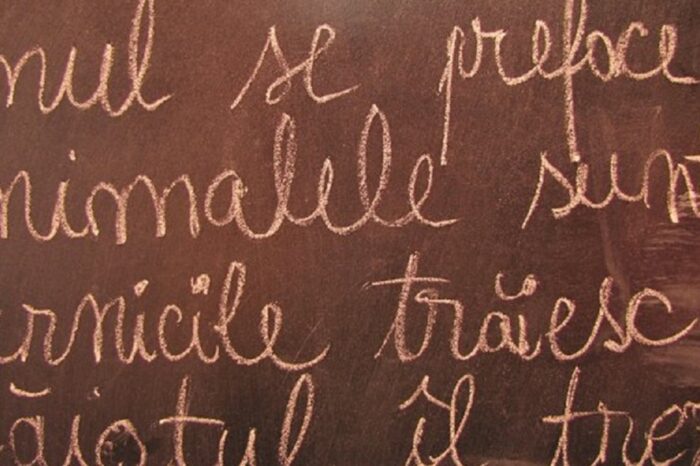 nul se preface
nimalele sun
rnicile trăiesc
ăiatul îl tre